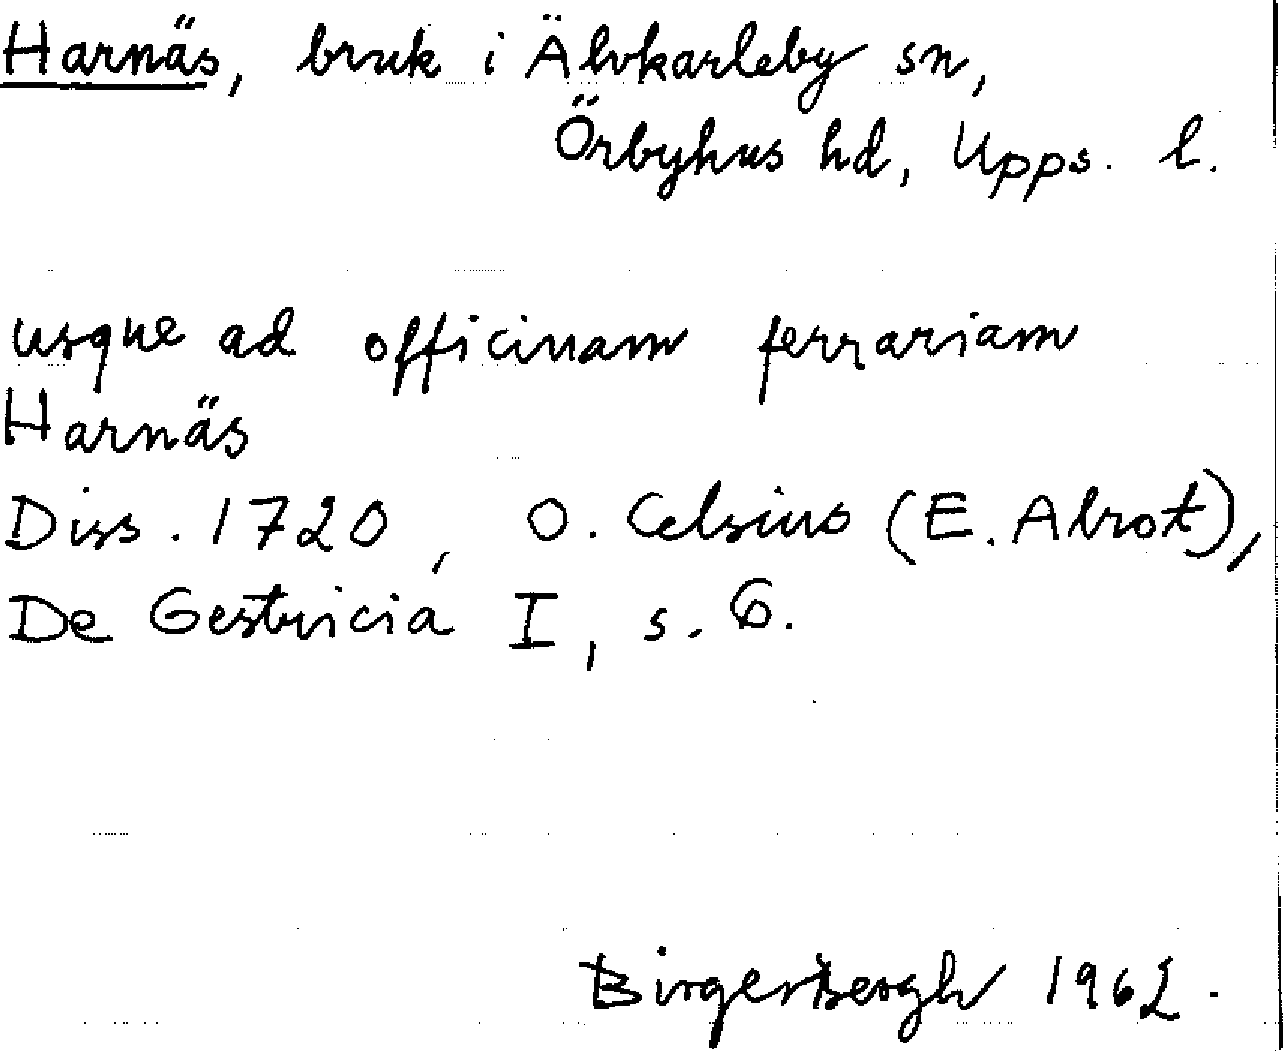 Harnäs, bruk i Älvkarleby sn,
Örbyhus hd, Upps. l.
usque ad officinam ferrariam
Harnäs
Diss. 1720, O. Celsius (E. Abrot),
De Gestricia I, s. 6.
Birger Bergh 1962.